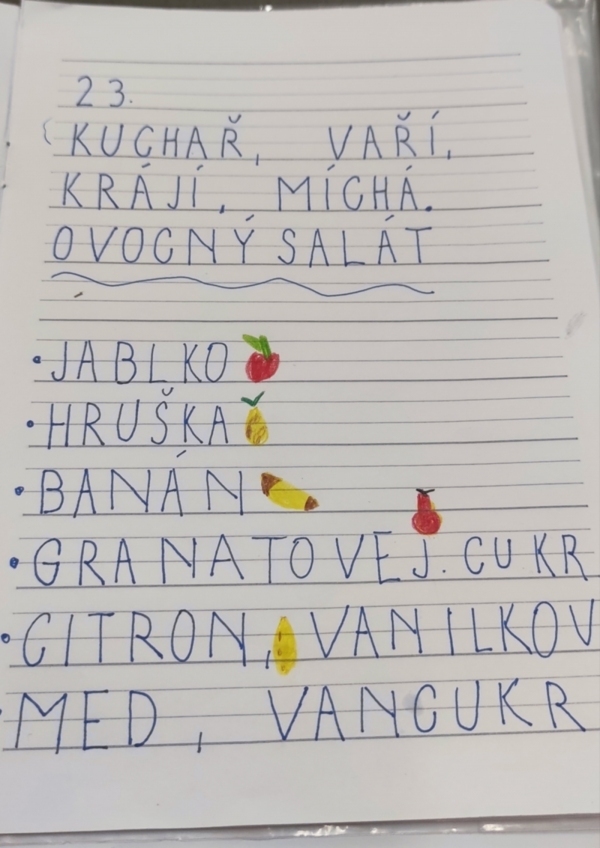 23.
KUCHAŘ, VAŘÍ,
KRÁJÍ, MÍCHÁ.
OVOCNÝ SALÁT
• JABLKO
• HRUŠKA
• BANÁN
• GRANATOVÉJ. CUKR
• CITRON, VANILKOV
MED, VANCUKR